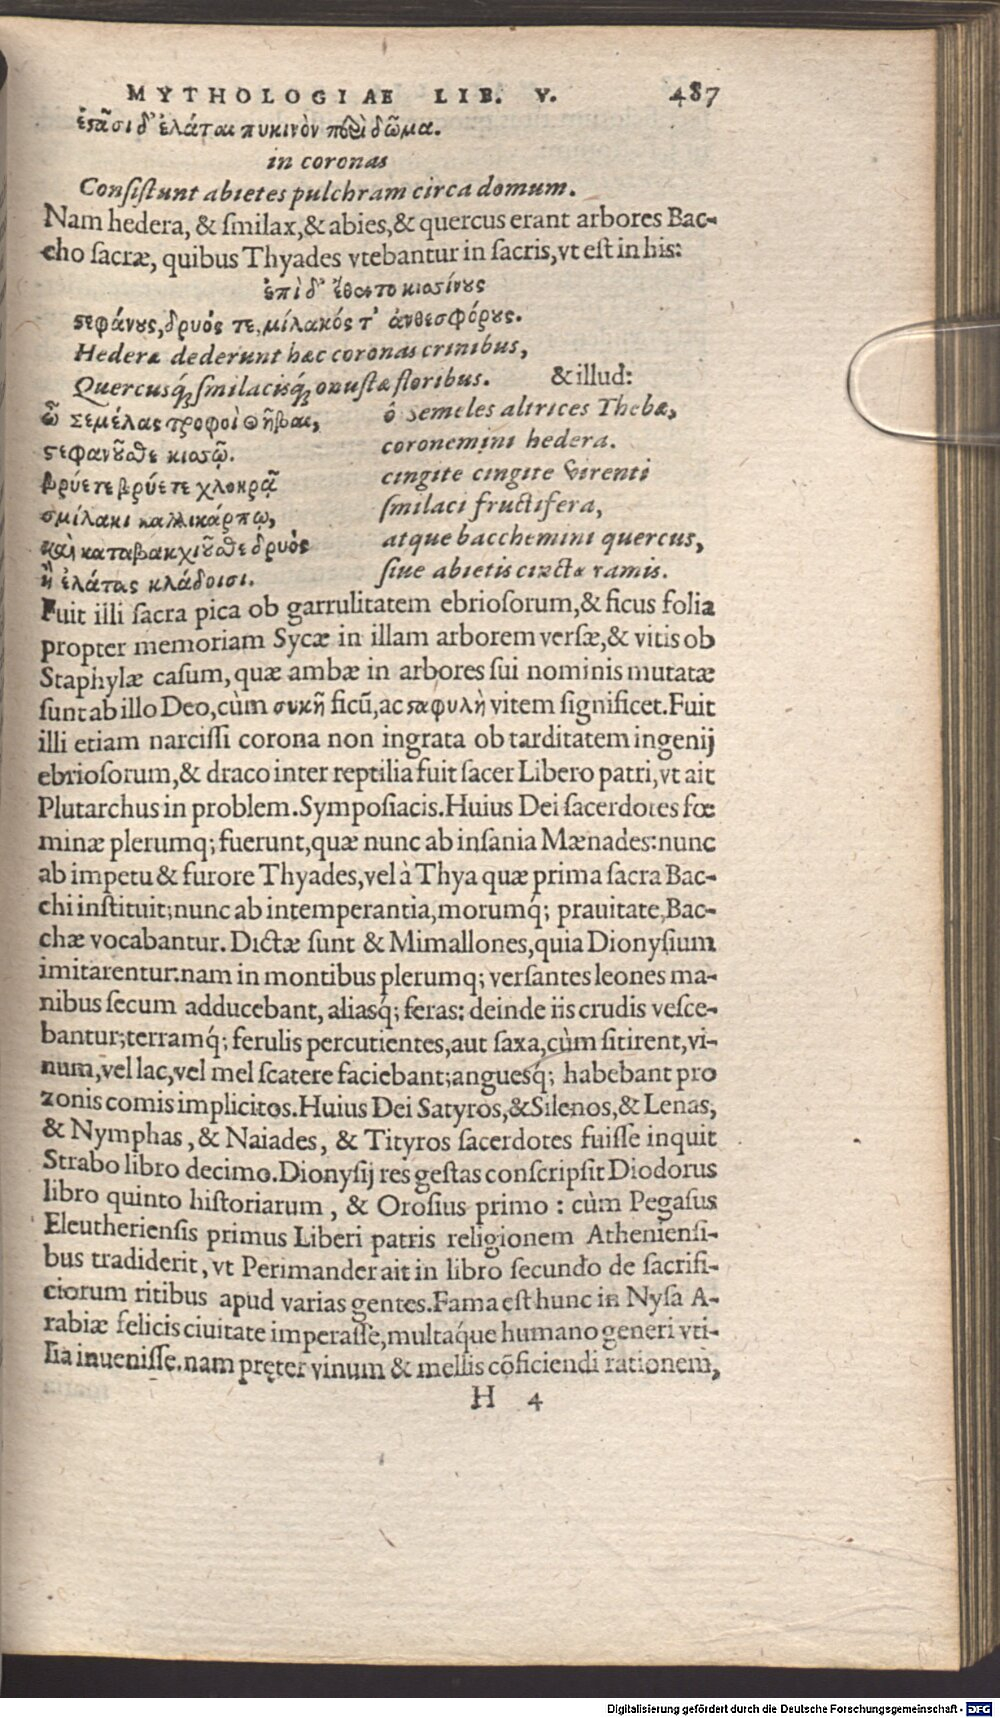 MYTHOLOGIAE LIB. V. 487
ἑστᾶσι δ' ἐλάται πυκινὸν περὶ δῶμα.
in coronas
Consistunt abietes pulchram circa domum.
Nam hedera, & smilax, & abies, & quercus erant arbores Bac-
cho sacræ, quibus Thyades vtebantur in sacris, vt est in his:
ἐπὶ δ' ἔθεντο κισσίνους
στεφάνους, δρυός τε, μίλακός τ' ἀνθεσφόρους.
Hederæ dederunt hæc coronas crinibus,
Quercusq́; smilacisq́; onustæ floribus. & illud:
ὦ Σεμέλας τροφοὶ Θῆβαι, ô Semeles altrices Thebæ,
στεφανοῦσθε κισσῷ. coronemini hedera.
βρύετε βρύετε χλοηρᾷ cingite cingite virenti
σμίλακι καλλικάρπῳ, smilaci fructifera,
καὶ καταβακχιοῦσθε δρυὸς atque bacchemini quercus,
ἢ ἐλάτας κλάδοισι. siue abietis cinctæ ramis.
Fuit illi sacra pica ob garrulitatem ebriosorum, & ficus folia
propter memoriam Sycæ in illam arborem versæ, & vitis ob
Staphylæ casum, quæ ambæ in arbores sui nominis mutatæ
sunt ab illo Deo, cùm συκῆ ficũ, ac σταφυλὴ vitem significet. Fuit
illi etiam narcissi corona non ingrata ob tarditatem ingenij
ebriosorum, & draco inter reptilia fuit sacer Libero patri, vt ait
Plutarchus in problem. Symposiacis. Huius Dei sacerdotes fœ
minæ plerumq; fuerunt, quæ nunc ab insania Mænades: nunc
ab impetu & furore Thyades, vel à Thya quæ prima sacra Bac-
chi instituit; nunc ab intemperantia, morumq́; prauitate, Bac-
chæ vocabantur. Dictæ sunt & Mimallones, quia Dionysium
imitarentur: nam in montibus plerumq; versantes leones ma-
nibus secum adducebant, aliasq́; feras: deinde iis crudis vesce-
bantur; terramq́; ferulis percutientes, aut saxa, cùm sitirent, vi-
num, vel lac, vel mel scatere faciebant; anguesq́; habebant pro
zonis comis implicitos. Huius Dei Satyros, & Silenos, & Lenas,
& Nymphas, & Naiades, & Tityros sacerdotes fuisse inquit
Strabo libro decimo. Dionysij res gestas conscripsit Diodorus
libro quinto historiarum, & Orosius primo: cùm Pegasus
Eleutheriensis primus Liberi patris religionem Atheniensi-
bus tradiderit, vt Perimander ait in libro secundo de sacrifi-
ciorum ritibus apud varias gentes. Fama est hunc in Nysa A-
rabiæ felicis ciuitate imperasse, multaq́ue humano generi vti-
lia inuenisse. nam pręter vinum & mellis cõficiendi rationem,
H 4
Digitalisierung gefördert durch die Deutsche Forschungsgemeinschaft - DFG